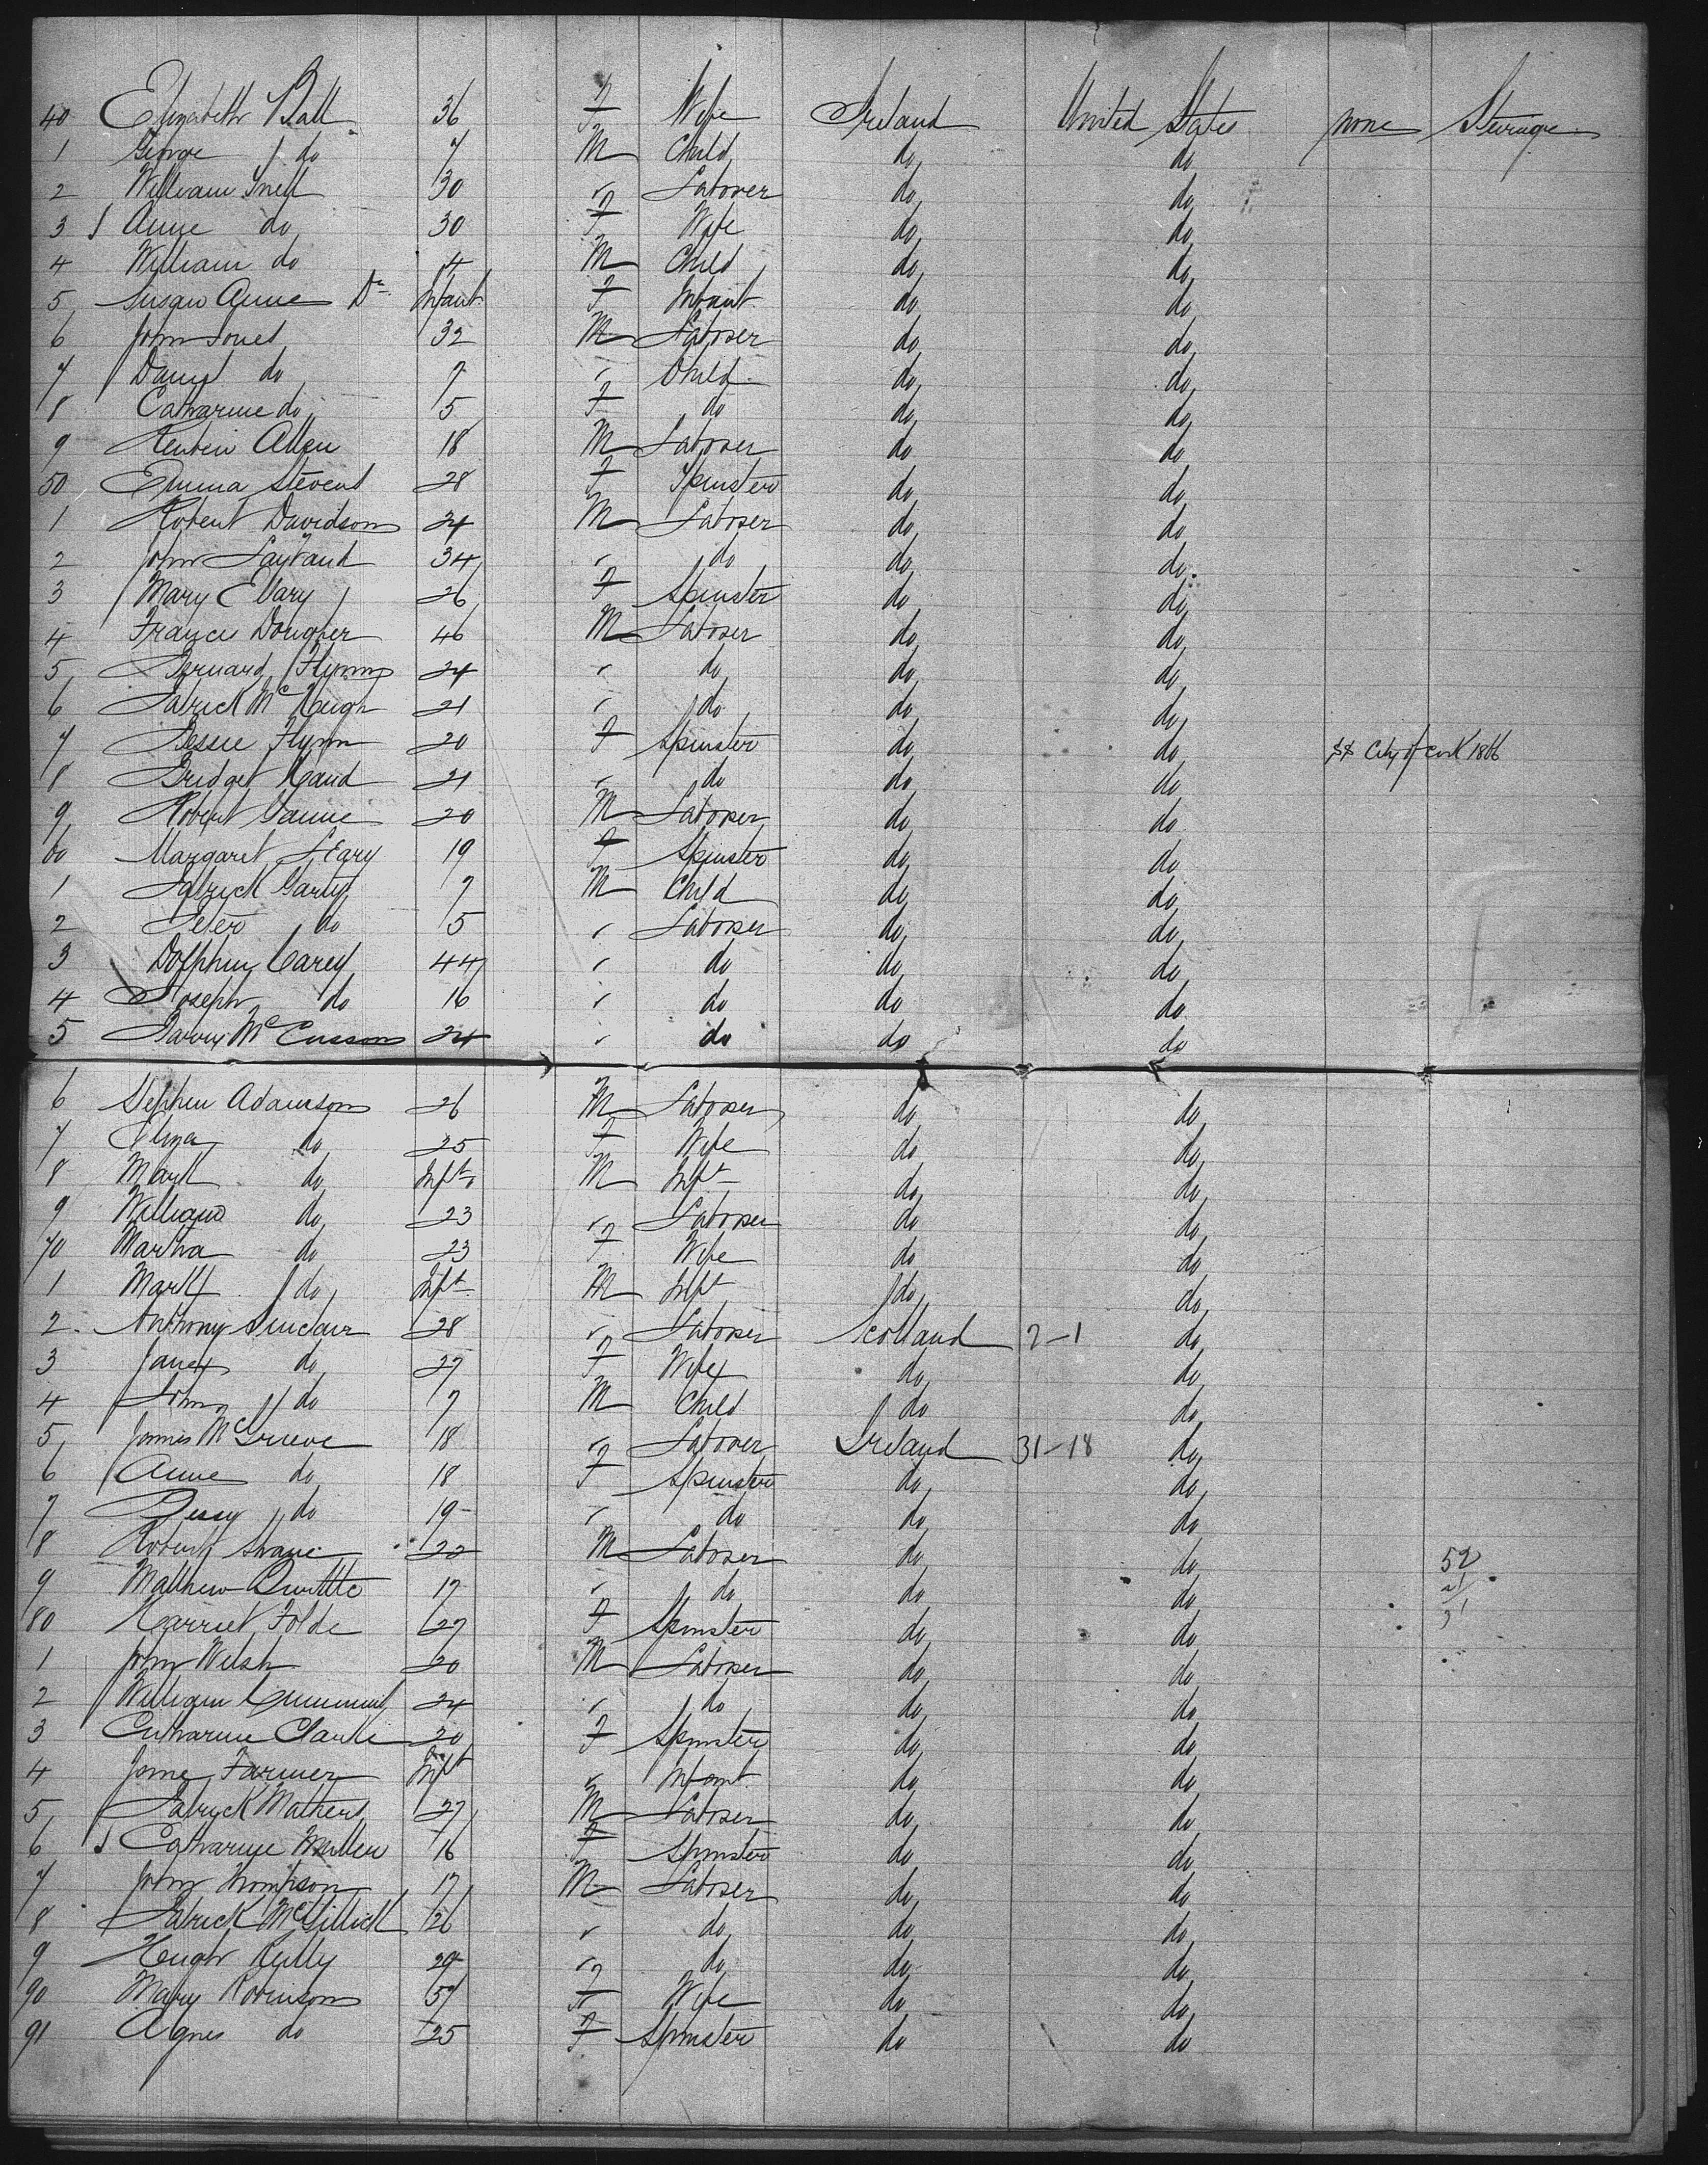 40 Elizabeth Ball 36 F Wife Ireland United States none Steerage
1 George do 7 M Child do do
2 William Snell 30 " Laborer do do
3 Anne do 30 F Wife do do
4 William do 4 M Child do do
5 Susan Anne Do Infant F Infant do do
6 John Jones 32 M Laborer do do
7 Daniel do 7 " Child do do
8 Catharine do 5 F do do do
9 Reuben Allen 18 M Laborer do do
50 Emma Stevens 28 F Spinster do do
1 Robert Davidson 24 M Laborer do do
2 John 34 " do do do
3 Mary 26 F Spinster do do
4 Francis Dougher 46 M Laborer do do
5 Bernard Flynn 24 " do do do
6 Patrick McHugh 21 " do do do
7 Bessie Flynn 20 F Spinster do do SS City of Cork 1866
8 Bridget Hand 21 " do do do
9 Robert 20 M Laborer do do
60 Margaret Leary 19 F Spinster do do
1 Patrick Garty 7 M Child do do
2 Peter do 5 " Laborer do do
3 Dolphin Carey 44 " do do do
4 Joseph do 16 " do do do
5 McCusson 24 " do do do
6 Stephen Adamson 26 M Laborer do do
7 Eliza do 25 F Wife do do
8 Mark do Inft M Inft do do
9 William do 23 " Laborer do do
70 Martha do 23 F Wife do do
1 Mark do Inft M Inft do do
2 Anthony Sinclair 28 " Laborer Scotland 2-1 do
3 Janet do 27 F Wife do do
4 John do 7 M Child do do
5 James McGrieve 18 " Laborer Ireland 31-18 do
6 Anne do 18 F Spinster do do
7 Bessy do 19 " do do do
8 Robert 22 M Laborer do do 52
9 Mathew 17 " do do do 21
80 Harriet Folde 27 F Spinster do do 31
1 John Welsh 20 M Laborer do do
2 William 24 " do do do
3 Catharine Clarke 20 F Spinster do do
4 Jane Farmer Inft " Infant do do
5 Patrick Mathers 27 M Laborer do do
6 Catharine Mullen 16 F Spinster do do
7 John Thompson 17 M Laborer do do
8 Patrick McGillick 26 " do do do
9 Hugh Reilly 29 " do do do
90 Mary Robinson 57 F Wife do do
91 Agnes do 25 F Spinster do do